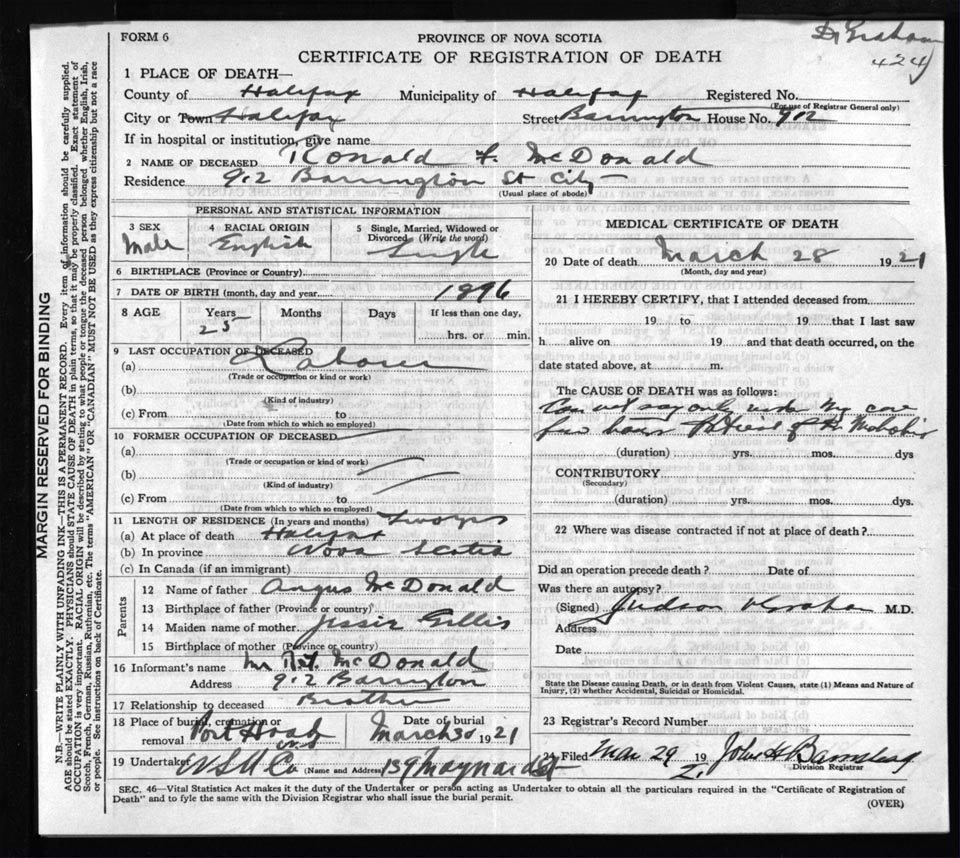 FORM 6
PROVINCE OF NOVA SCOTIA
CERTIFICATE OF REGISTRATION OF DEATH
Dr Graham
424
MARGIN RESERVED FOR BINDING
N.B.—WRITE PLAINLY WITH UNFADING INK—THIS IS A PERMANENT RECORD. Every item of information should be carefully supplied.
AGE should be stated EXACTLY. PHYSICIANS should STATE CAUSE OF DEATH in plain terms, so that it may be properly classified. Exact statement of
OCCUPATION is very important. RACIAL ORIGIN will be described by stating to what people or tongue the deceased person belonged whether English, Irish,
Scotch, French, German, Russian, Ruthenian, etc. The terms "AMERICAN" OR "CANADIAN" MUST NOT BE USED as they express citizenship but not a race
or people. See instructions on back of Certificate.
1 PLACE OF DEATH—
County of Halifax Municipality of Halifax Registered No.
(For use of Registrar General only)
City or Town Halifax Street Barrington House No. 912
If in hospital or institution, give name
2 NAME OF DECEASED Ronald F. McDonald
Residence 912 Barrington St City
(Usual place of abode)
PERSONAL AND STATISTICAL INFORMATION
3 SEX Male
4 RACIAL ORIGIN English
5 Single, Married, Widowed or Divorced (Write the word) Single
6 BIRTHPLACE (Province or Country)
7 DATE OF BIRTH (month, day and year) 1896
8 AGE Years Months Days If less than one day,
25 hrs. or min.
9 LAST OCCUPATION OF DECEASED
(a) Laborer
(Trade or occupation or kind of work)
(b)
(Kind of industry)
(c) From to
(Date from which to which so employed)
10 FORMER OCCUPATION OF DECEASED
(a)
(Trade or occupation or kind of work)
(b)
(Kind of industry)
(c) From to
(Date from which to which so employed)
11 LENGTH OF RESIDENCE (In years and months) Two yrs
(a) At place of death Halifax
(b) In province Nova Scotia
(c) In Canada (if an immigrant)
Parents
12 Name of father Angus McDonald
13 Birthplace of father (Province or country)
14 Maiden name of mother Jessie Gillis
15 Birthplace of mother (Province or country)
16 Informant's name Mr McDonald
Address 912 Barrington
17 Relationship to deceased Brother
18 Place of burial, cremation or removal Port Hood
Date of burial March 30 1921
19 Undertaker N S U Co 139 Maynard St
(Name and Address)
MEDICAL CERTIFICATE OF DEATH
20 Date of death March 28 1921
(Month, day and year)
21 I HEREBY CERTIFY, that I attended deceased from
19 to 19 that I last saw
h alive on 19 and that death occurred, on the
date stated above, at m.
The CAUSE OF DEATH was as follows:
Can not say only under my care
few hours Patient of Dr
(duration) yrs. mos. dys
CONTRIBUTORY
(Secondary)
(duration) yrs. mos. dys.
22 Where was disease contracted if not at place of death?
Did an operation precede death? Date of
Was there an autopsy?
(Signed) Judson Graham M.D.
Address
Date
State the Disease causing Death, or in death from Violent Causes, state (1) Means and Nature of
Injury, (2) whether Accidental, Suicidal or Homicidal.
23 Registrar's Record Number
24 Filed Mar 29 1921 John H Barnstead
Division Registrar
SEC. 46—Vital Statistics Act makes it the duty of the Undertaker or person acting as Undertaker to obtain all the particulars required in the "Certificate of Registration of
Death" and to fyle the same with the Division Registrar who shall issue the burial permit.
(OVER)